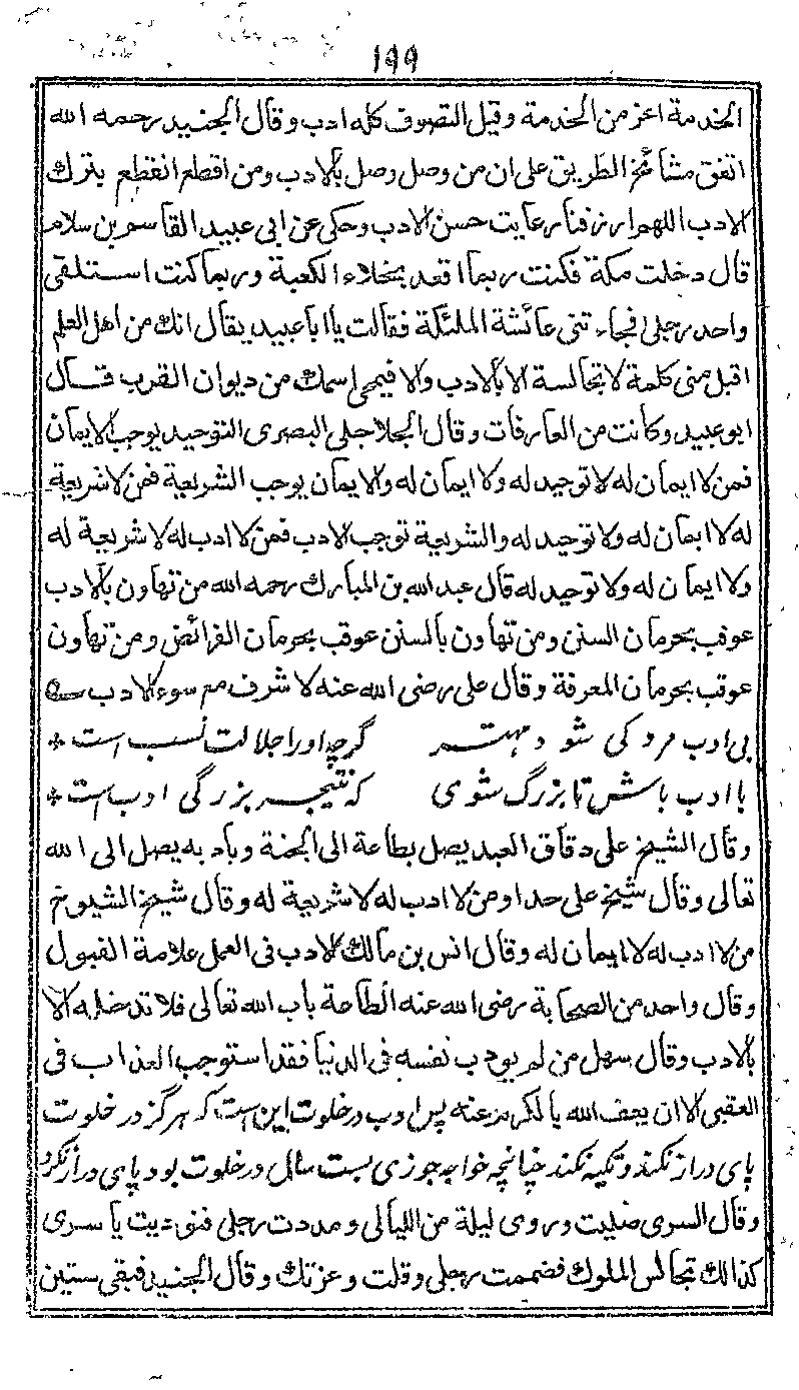 ۱۹۹
الخدمة اعز من الخدمة وقيل التصوف كله ادب وقال الجنيد رحمه الله
اتفق مشائخ الطريق على ان من وصل وصل بالادب ومن اقطع انقطع بترك
الادب اللهم ارزقنا رعايت حسن الادب وحكى عن ابى عبيد القاسم بن سلام
قال دخلت مكة فكنت ربما اقعد بحذاء الكعبة وربما كنت استلقى
واحد رجلى فجاءتنى عائشة الملئكة فقالت يا ابا عبيد يقال انك من اهل العلم
اقبل منى كلمة لا تجالسة الا بالادب والا فيمحى اسمك من ديوان القرب قال
ابو عبيد وكانت من العارفات وقال الجلاجلى البصرى التوحيد يوجب الايمان
فمن لا ايمان له لا توحيد له ولا ايمان له والايمان يوجب الشريعة فمن لا شريعة
له لا ايمان له ولا توحيد له والشريعة توجب الادب فمن لا ادب له لا شريعة له
ولا ايمان له ولا توحيد له قال عبد الله بن المبارك رحمه الله من تهاون بالادب
عوقب بحرمان السنن ومن تهاون بالسنن عوقب بحرمان الفرائض ومن تهاون
عوقب بحرمان المعرفة وقال على رضى الله عنه لا شرف مع سوء الادب
بى ادب مرد كى شود مهتر گرچه اورا جلالت نسب است *
با ادب باش تا بزرگ شوى كه نتيجه بزرگى ادب است *
وقال الشيخ على دقاق العبد يصل بطاعة الى الجنة وبادبه يصل الى الله
تعالى وقال شيخ على حداد من لا ادب له لا شريعة له وقال شيخ الشيوخ
من لا ادب له لا ايمان له وقال انس بن مالك الادب فى العمل علامة القبول
وقال واحد من الصحابة رضى الله عنه الطاعة باب الله تعالى فلا تدخله الا
بالادب وقال سهل من لم يودب نفسه فى الدنيا فقد استوجب العذاب فى
العقبى الا ان يعف الله بالكرم عنه پس ادب در خلوت اين است كه هرگز در خلوت
پاى دراز نكند وتكيه نكند خپانچه خواجه جوزى بست سال در خلوت بود پاى دراز نكرد
وقال السرى صليت وروى ليلة من الليالى ومددت رجلى فنوديت يا سرى
كذالك تجالس الملوك فضممت رجلى وقلت وعزتك وقال الجنيد فبقى ستين